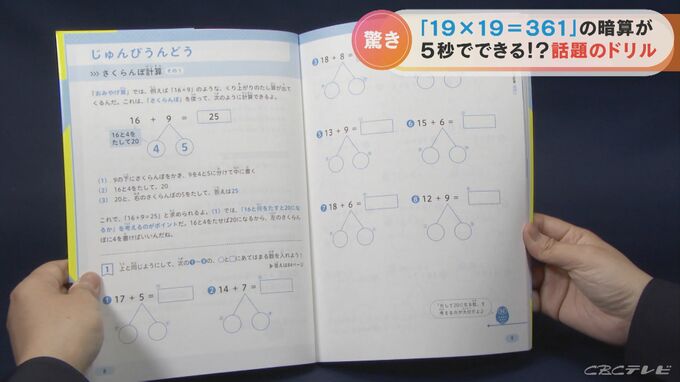 「19×19=361」の暗算が
驚き
5秒でできる!?話題のドリル
じゅんびうんどう
>>> さくらんぼ計算 その1
「おみやげ算」では、例えば「16+9」のような、くり上がりのたし算が出て
くるんだ。これは、「さくらんぼ」を使って、次のように計算できるよ。
16 + 9 = 25
16と4を
たして20
4 5
(1) 9の下にさくらんぼをかき、9を4と5に分けて中に書く
(2) 16と4をたして、20
(3) 20と、右のさくらんぼの5をたして、答えは25
これで、「16+9=25」と求められるよ。(1)では、「16と何をたすと20にな
るか」を考えるのがポイントだ。16と4をたせば20になるから、左のさくらん
ぼに4を書けばいいんだね。
1 上と同じようにして、次の❶〜❽の、○と□にあてはまる数を入れよう!
▶答えは84ページ
❶ 17 + 5 =
❷ 14 + 7 =
8
❸ 18 + 8 =
❺ 13 + 9 =
❻ 15 + 6 =
❼ 18 + 6 =
❽ 12 + 9 =
「たして20になる数」を
考えるのが大切だよ♪
9
CBCテレビ